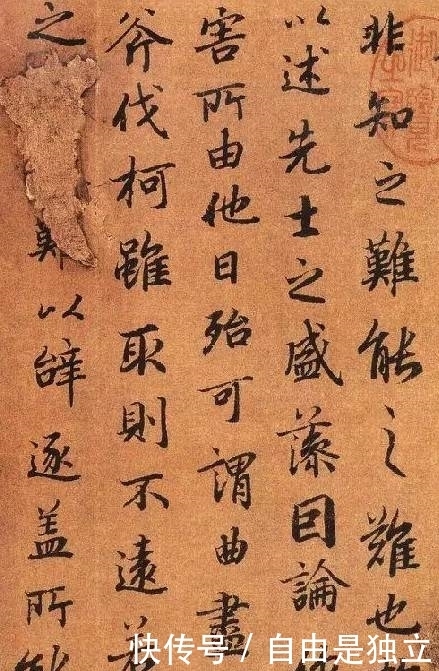 非知之難能之難也
以述先士之盛藻因論
害所由他日殆可謂曲盡
斧伐柯雖取則不遠若
之難以辭逐蓋所能
快传号 / 自由是独立